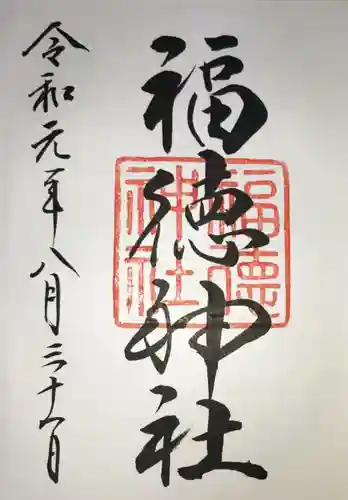 福徳神社
福徳神社
令和元年八月三十一日